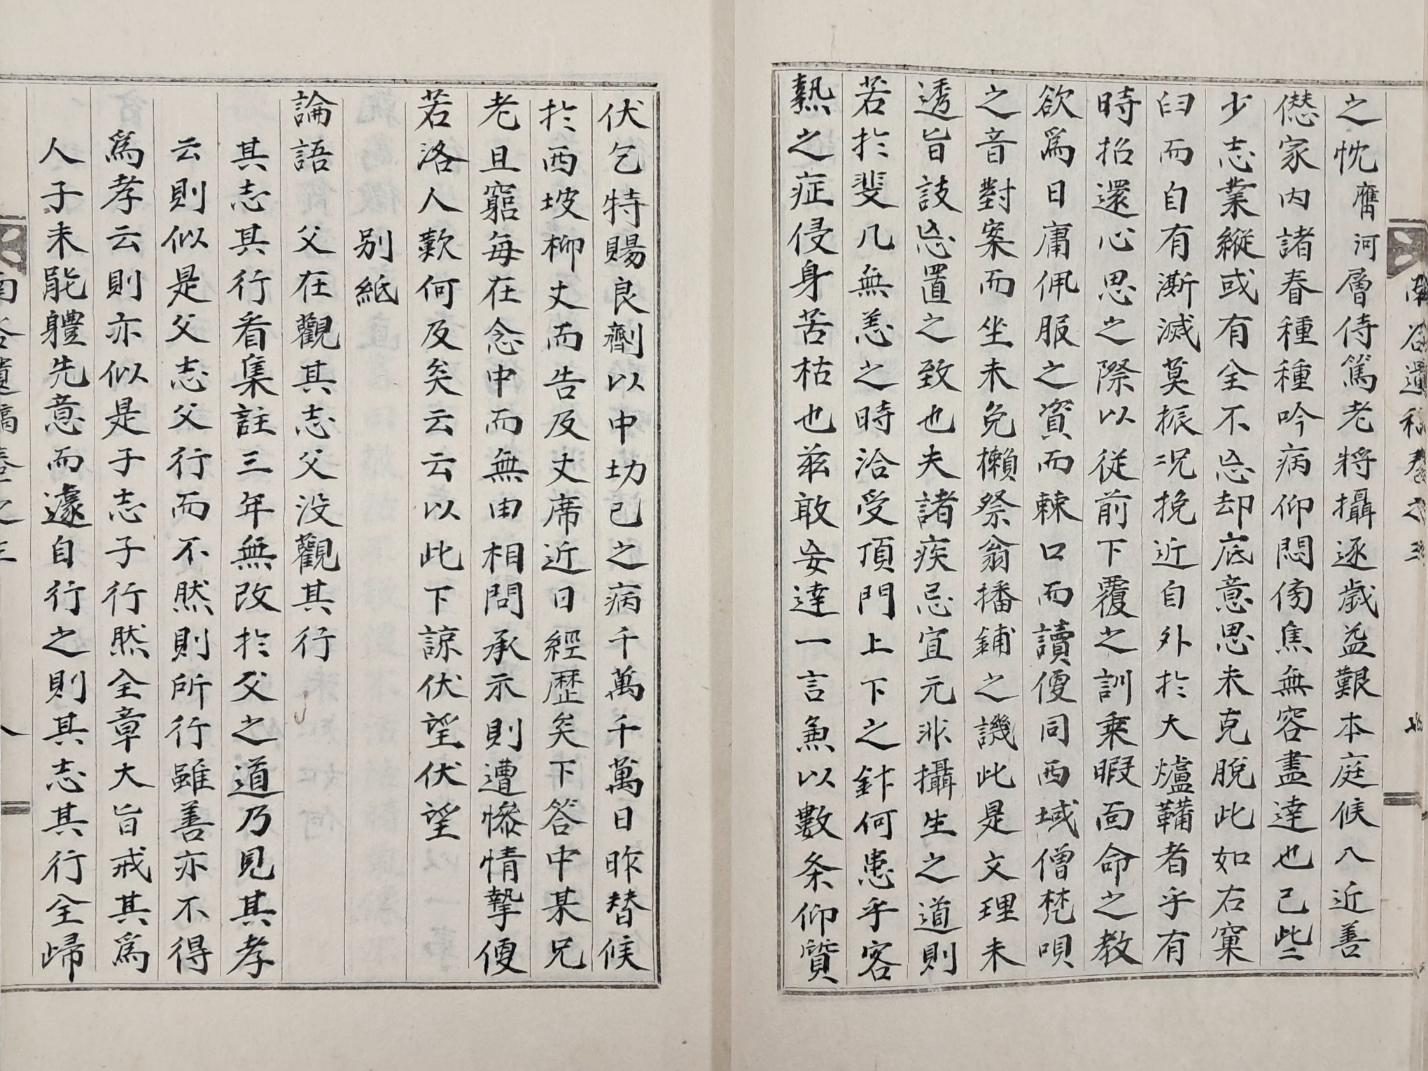 之忱膺河層侍篤老將攝逐歲益艱本庭候八近善
僽家內諸眷種種吟病仰悶傍焦無容盡達也己些
少志業縱或有全不忘却底意思未克脫此如右窠
臼而自有漸滅莫振况挽近自外於大爐鞴者乎有
時招還心思之際以從前下覆之訓乘暇面命之教
欲爲日庸佩服之資而棘口而讀便同西域僧梵唄
之音對案而坐未免獺祭翁播鋪之譏此是文理未
透旨諔忘置之致也夫諸疾忌宜元非攝生之道則
若於斐几無恙之時洽受頂門上下之針何患乎客
熱之症侵身苦枯也玆敢妄達一言兼以數条仰質
伏乞特賜良劑以中切己之病千萬千萬日昨替候
於西坡柳丈而告及丈席近日經歷矣下答中某兄
老且窮每在念中而無由相問承示則遭慘情摯便
若洛人歎何及矣云云以此下諒伏望伏望
別紙
論語父在觀其志父没觀其行
其志其行看集註三年無改於父之道乃見其孝
云則似是父志父行而不然則所行雖善亦不得
爲孝云則亦似是子志子行然全章大旨戒其爲
人子未能體先意而遽自行之則其志其行全歸
南谷遺稿卷之三
八